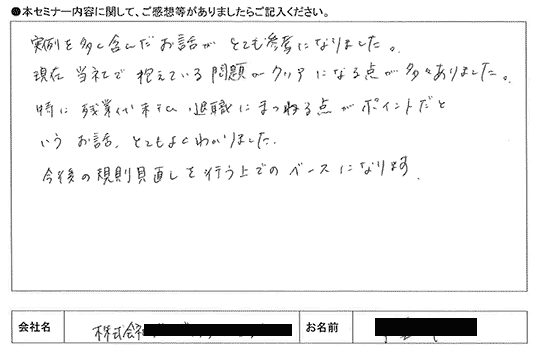 ●本セミナー内容に関して、ご感想等がありましたらご記入ください。
実例を多く含んだお話がとても参考になりました。
現在当社で抱えている問題がクリアになる点が多々ありました。
特に残業代未払い、退職にまつわる点がポイントだと
いうお話、とてもよくわかりました。
今後の規則見直しを行う上でのベースになります
会社名 株式会社 お名前